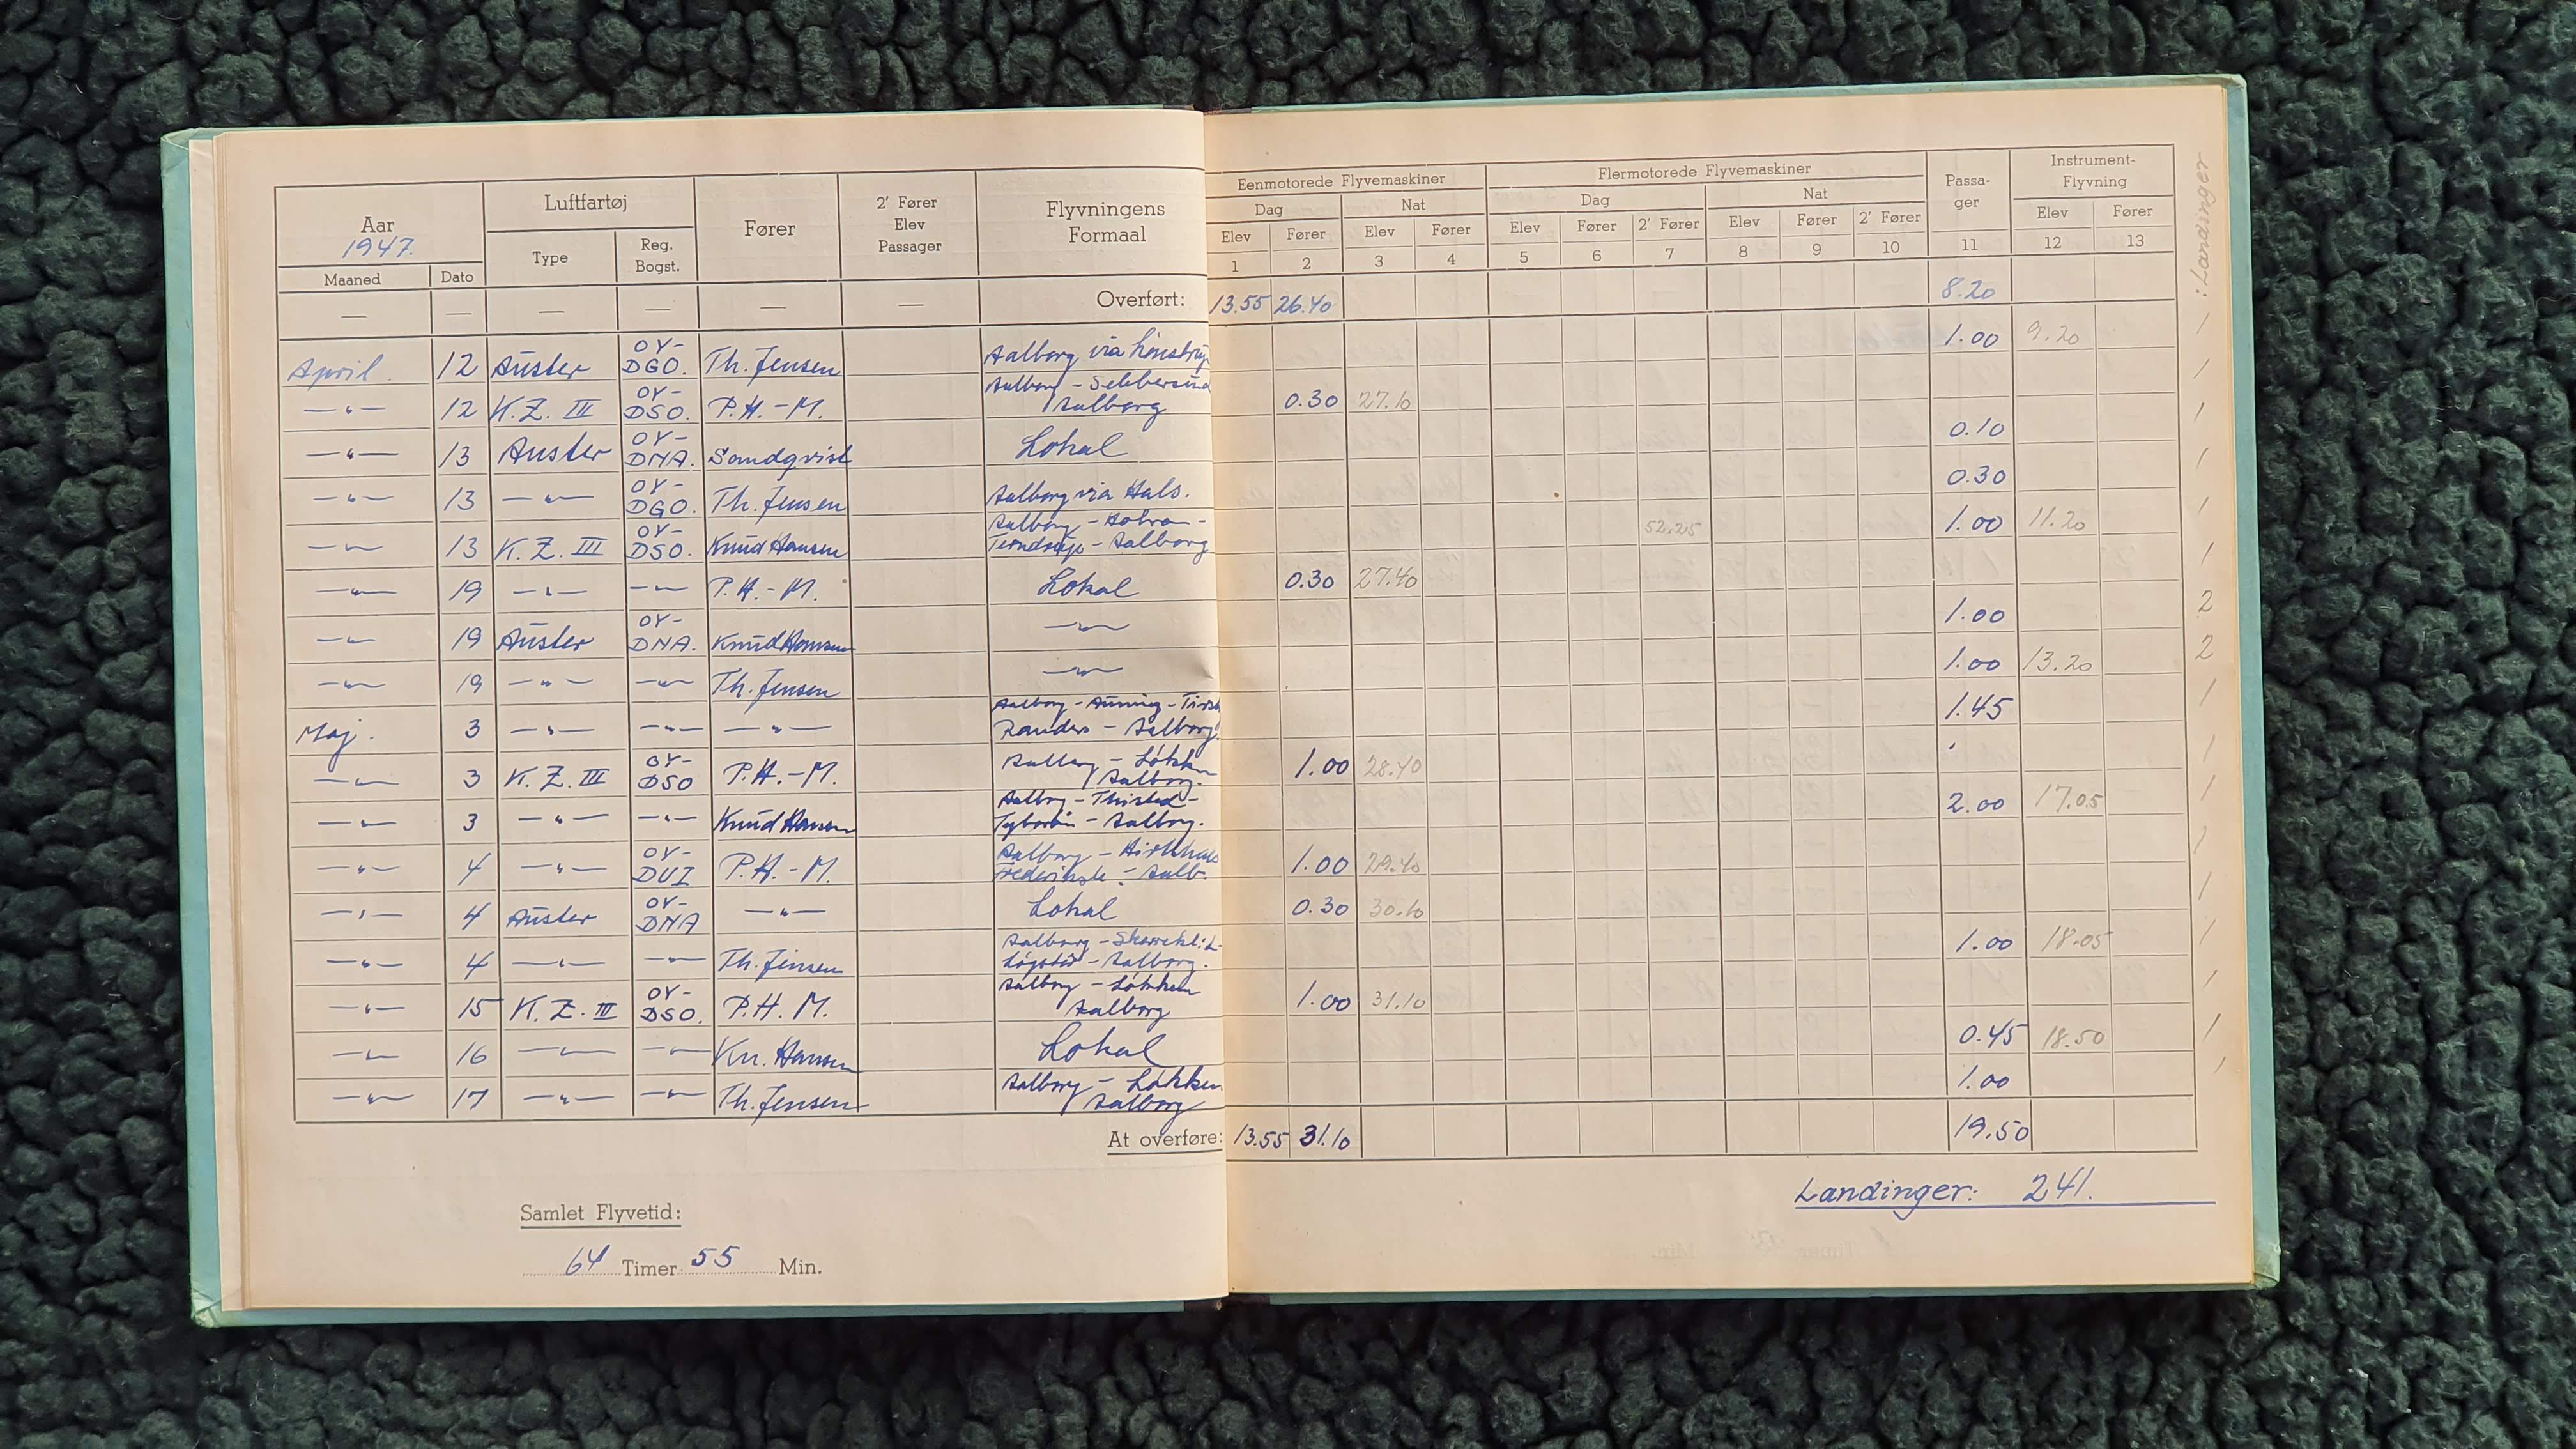 Aar
1947.
Maaned Dato
Luftfartøj
Type Reg. Bogst.
Fører
2' Fører
Elev
Passager
Flyvningens
Formaal
Eenmotorede Flyvemaskiner
Dag Nat
Elev Fører Elev Fører
1 2 3 4
Flermotorede Flyvemaskiner
Dag Nat
Elev Fører 2' Fører Elev Fører 2' Fører
5 6 7 8 9 10
Passa-
ger
11
Instrument-
Flyvning
Elev Fører
12 13
:Landinger
— — — — — — Overført: 13.55 26.40 8.20
April 12 Auster OY-DGO. Th. Jensen Aalborg via 1.00 9.20 1
—"— 12 K.Z. III OY-DSO. P.H.-M. Aalborg - Sebbersund Aalborg 0.30 27.10 1
—"— 13 Auster OY-DNA. Sandqvist Lokal 0.10 1
—"— 13 —"— OY-DGO. Th. Jensen Aalborg via Hals. 0.30 1
—"— 13 K.Z. III OY-DSO. Knud Hansen Aalborg - Hobro - Terndrup - Aalborg 52.25 1.00 11.20 1
—"— 19 —"— —"— P.H.-M. Lokal 0.30 27.40 1
—"— 19 Auster OY-DNA. Knud Hansen —"— 1.00 2
—"— 19 —"— —"— Th. Jensen —"— 1.00 13.20 2
Maj. 3 —"— —"— —"— Aalborg - Auning - Randers - Aalborg. 1.45 1
—"— 3 K.Z. III OY-DSO P.H.-M. Aalborg - Løkken Aalborg. 1.00 28.40 1
—"— 3 —"— —"— Knud Hansen Aalborg - Thisted - Tyborøn - Aalborg. 2.00 17.05 1
—"— 4 —"— OY-DUI P.H.-M. Aalborg - Hirtshals Frederiksh. - Aalb. 1.00 29.40 1
—"— 4 Auster OY-DNA —"— Lokal 0.30 30.10 1
—"— 4 —"— —"— Th. Jensen Aalborg - Løgstør - Aalborg. 1.00 18.05 1
—"— 15 K.Z. III OY-DSO. P.H.M. Aalborg - Løkken Aalborg 1.00 31.10 1
—"— 16 —"— —"— Kn. Hansen Lokal 0.45 18.50 1
—"— 17 —"— —"— Th. Jensen Aalborg - Løkken Aalborg 1.00 1
At overføre: 13.55 31.10 19.50
Landinger: 241.
Samlet Flyvetid:
64 Timer 55 Min.